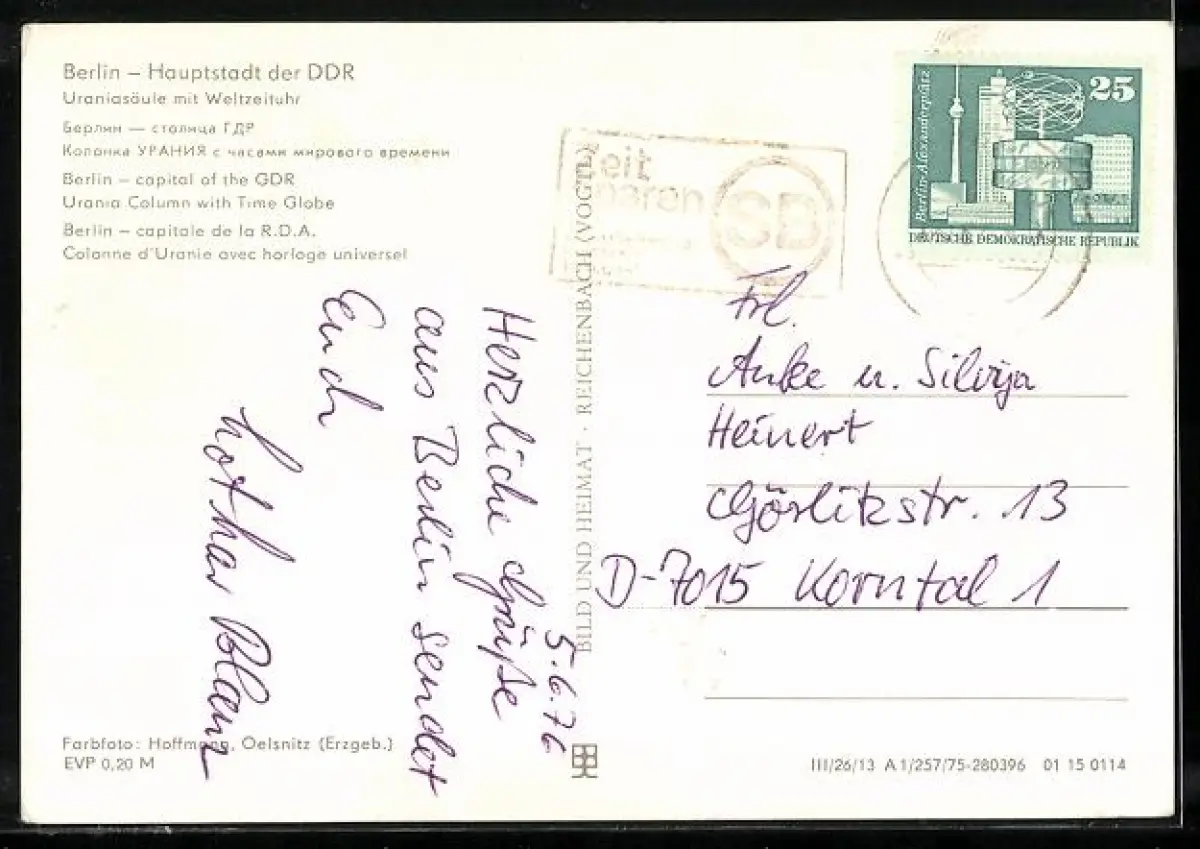 Berlin – Hauptstadt der DDR
Uraniasäule mit Weltzeituhr
Берлин — столица ГДР
Колонка УРАНИЯ с часами мирового времени
Berlin – capital of the GDR
Urania Column with Time Globe
Berlin – capitale de la R.D.A.
Colonne d'Uranie avec horloge universel
5.6.76
Herzliche Grüße
aus Berlin sendet
Euch
Lothar
Farbfoto: Hoffmann, Oelsnitz (Erzgeb.)
EVP 0,20 M
BILD UND HEIMAT · REICHENBACH (VOGTL)
SB
25
Berlin-Alexanderplatz
DEUTSCHE DEMOKRATISCHE REPUBLIK
Frl.
Anke u. Silvija
Heinert
Görlitzstr. 13
D-7015 Korntal 1
III/26/13 A 1/257/75-280396 01 15 0114